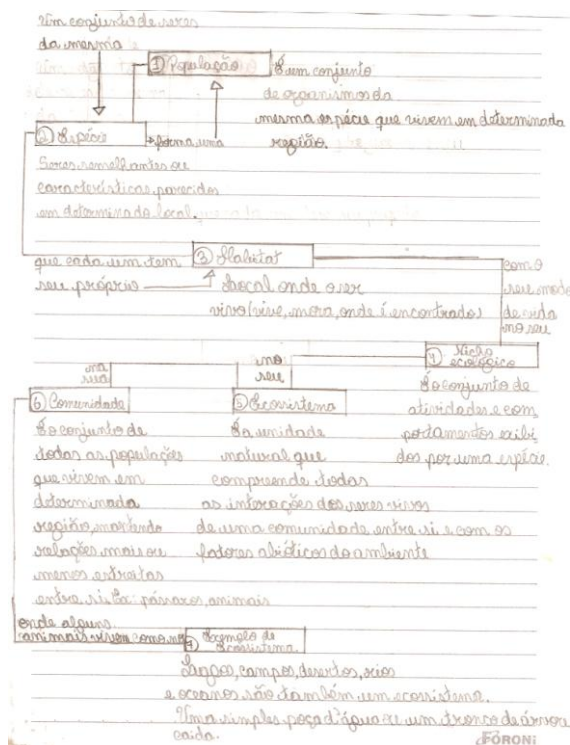 Um conjunto de seres
da mesma
① População
É um conjunto
de organismos da
mesma espécie que vivem em determinada
região.
② Espécie
forma uma
Seres semelhantes ou
características parecidos
em determinado local.
que cada um tem
seu próprio
③ Habitat
Local onde o ser
vivo (vive, mora, onde é encontrado)
com o
seu modo
de vida
no seu
4 Nicho
ecológico
É o conjunto de
atividades e com
portamentos exibi
dos por uma espécie.
na
sua
no
seu
⑥ Comunidade
É o conjunto de
todas as populações
que vivem em
determinada
região, mantendo
relações mais ou
menos estreitas
entre si. Ex: pássaros, animais
⑤ Ecossistema
É a unidade
natural que
compreende todas
as interações dos seres vivos
de uma comunidade entre si e com os
fatores abióticos do ambiente
onde alguns
animais vivem como no
7 Exemplo de
Ecossistema
Lagos, campos, desertos, rios
e oceanos são também um ecossistema.
Uma simples poça d'água ou um tronco de árvore
caída.
FORONI